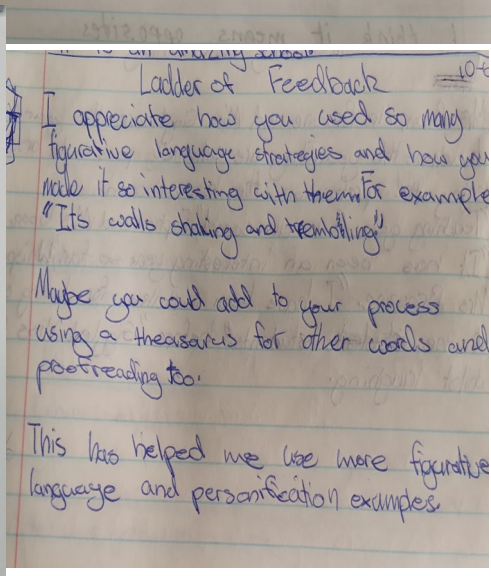 it is an amazing school
Ladder of Feedback
I appreciate how you used so many
figurative language strategies and how you
made it so interesting with them. For example
"Its walls shaking and trembling"
Maybe you could add to your process
using a theasarus for other words and
proofreading too.
This has helped me use more figurative
language and personification examples.